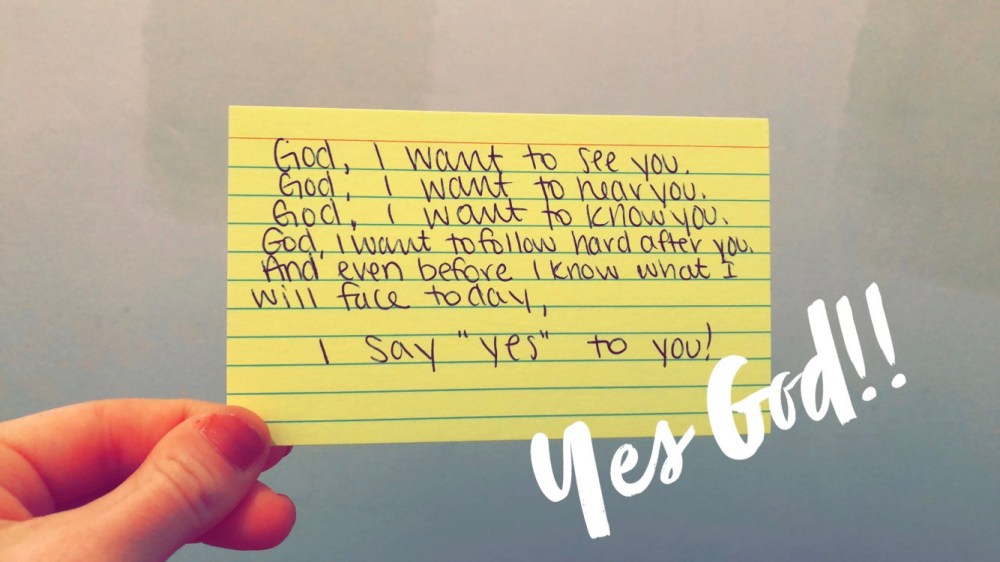 God, I want to see you.
God, I want to hear you.
God, I want to know you.
God, I want to follow hard after you.
And even before I know what I
will face today,
I say "yes" to you!
Yes God!!